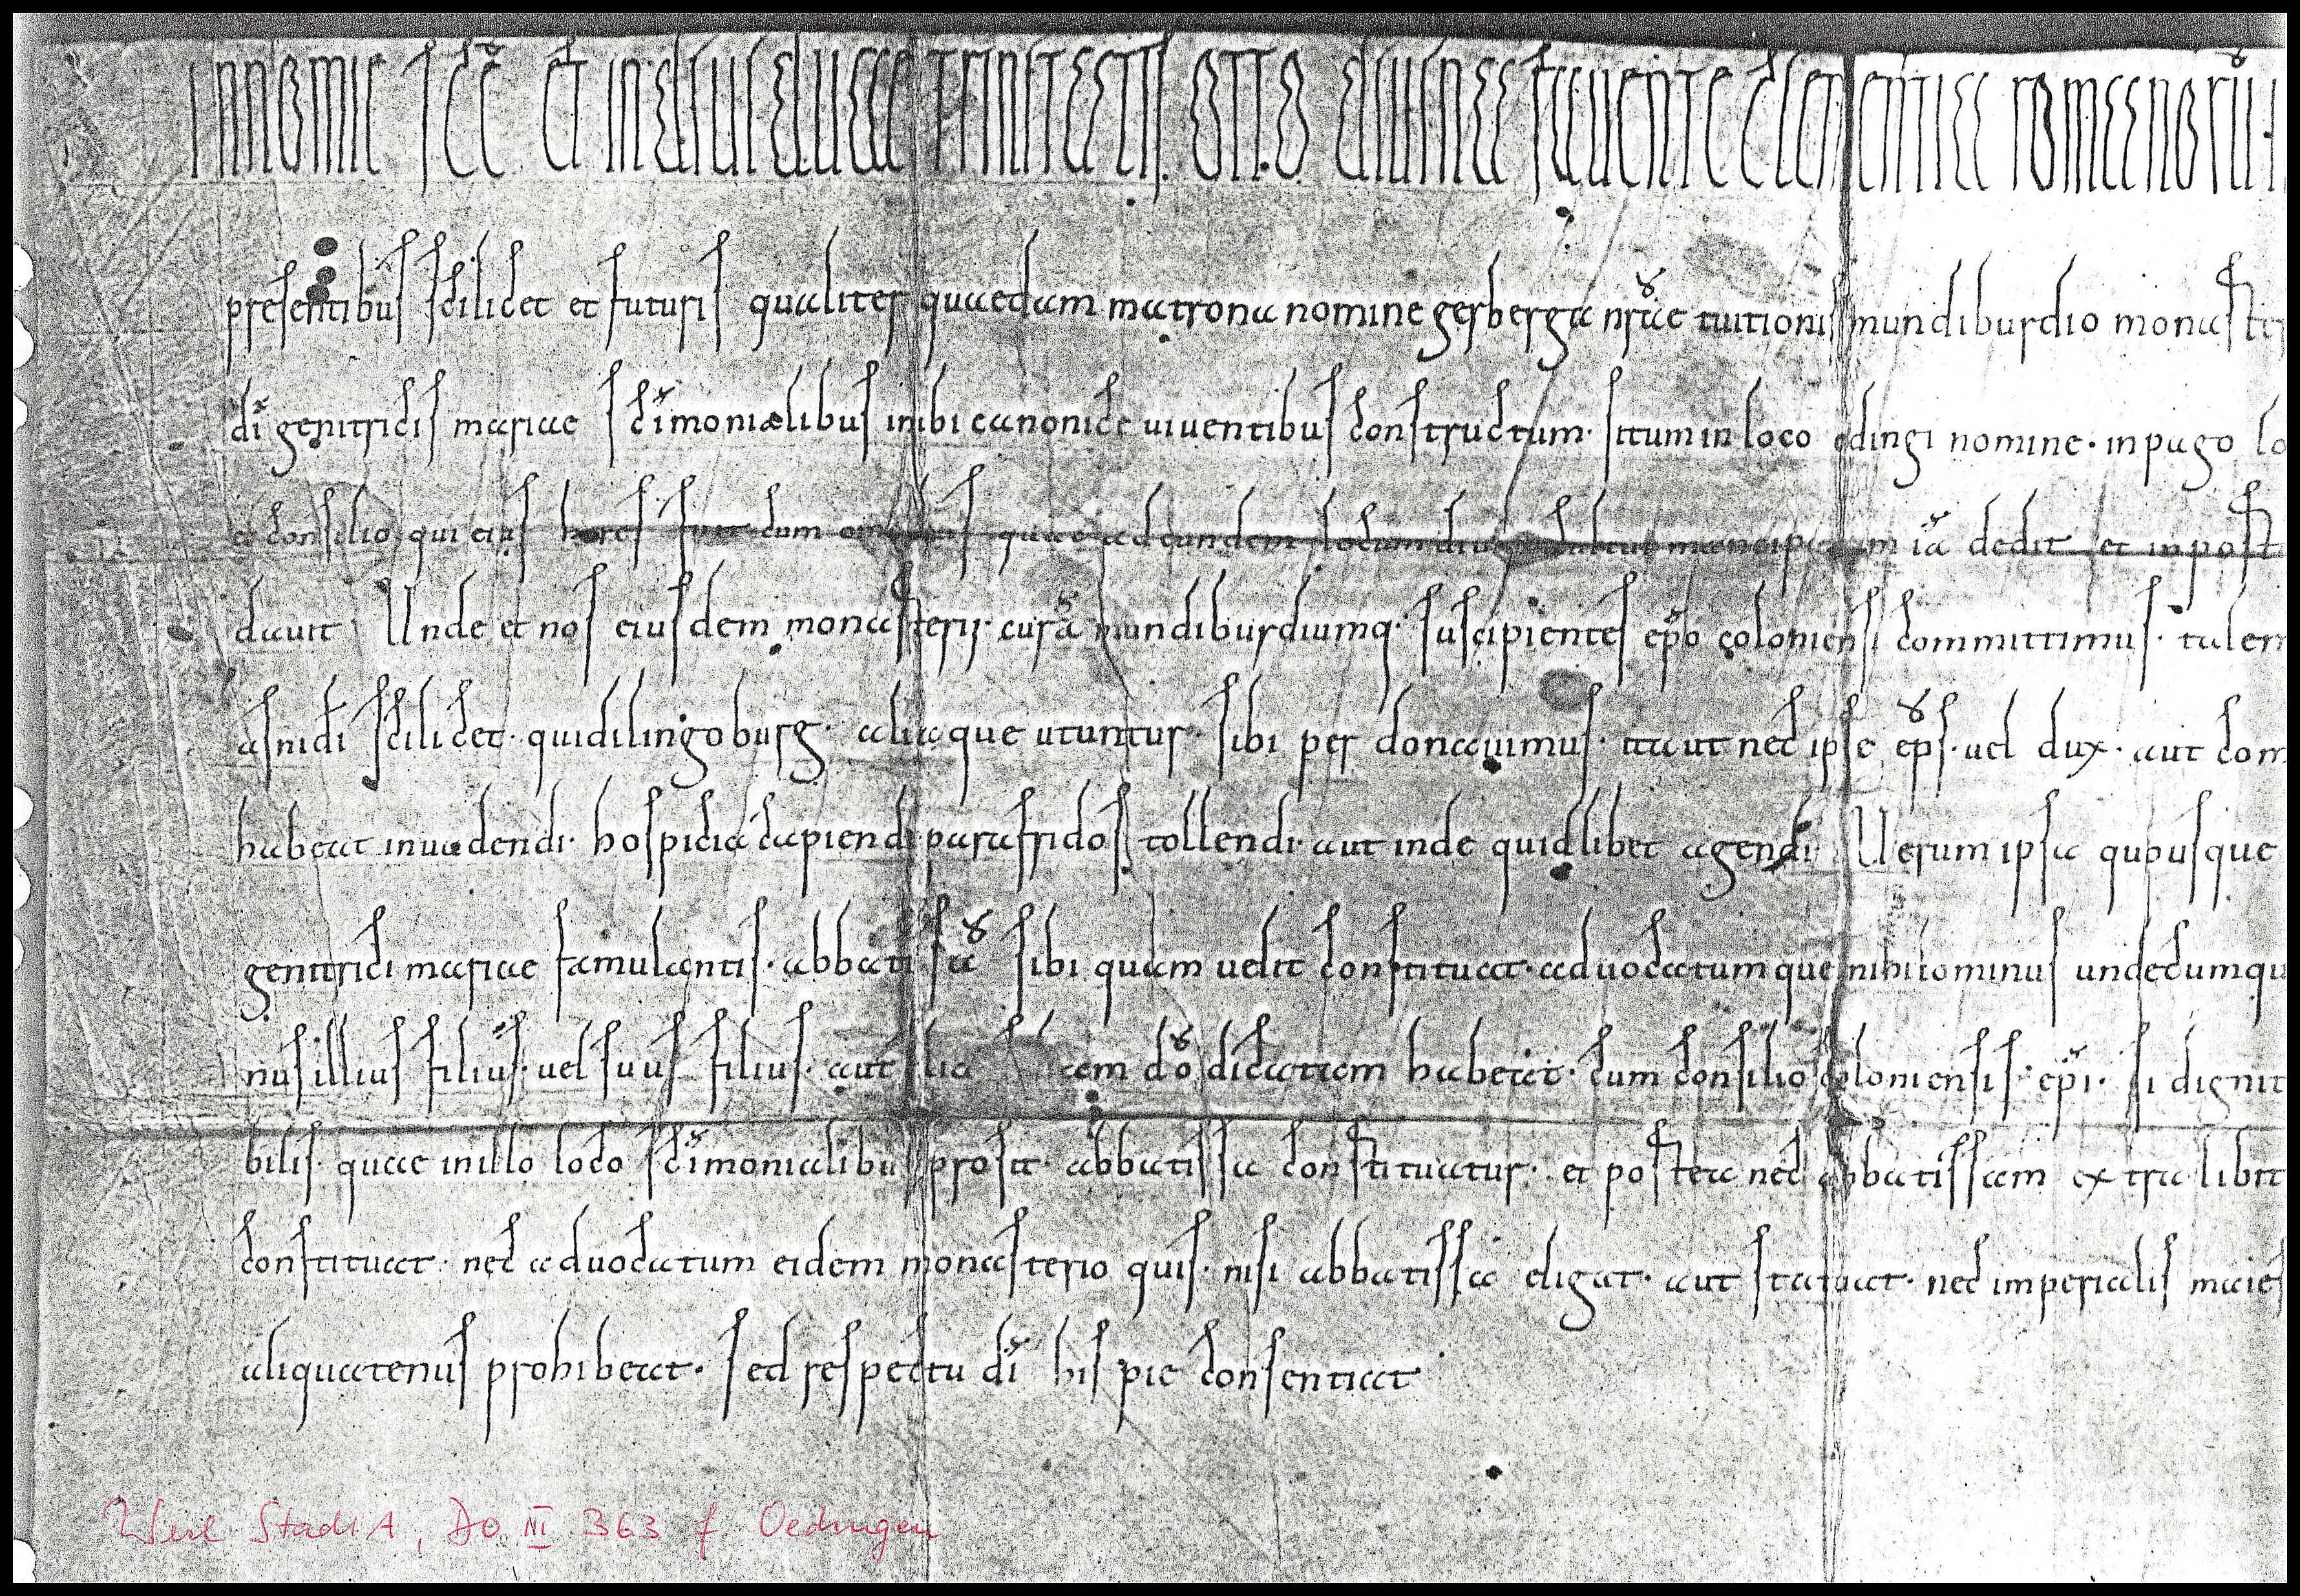 IN NOMINE SCĒ ET INDIUIDUAE TRINITATIS OTTO DIUINA FAUENTE CLEMENTIA ROMANORŪ
presentibus scilicet et futuris qualiter quaedam matrona nomine gerberga nr̄ae tuitionis mundiburdio monaste
dī genitricis mariae sc̄imonialibus inibi canonice uiuentibus constructum· situm in loco odingi nomine· in pago lo
consilio qui eius heres fuit cum quae ad eundem locum mancipauit iā dedit et in post
dauit Unde et nos eiusdem monasterij curā mundiburdiumq· suscipientes ep̄o coloniensi committimus· talem
asnidi scilicet· quidilingoburg· aliaque utuntur· sibi perdonauimus· ita ut nec ipse ep̄s· uel dux· aut com
habeat inuadendi· hospicia capiendi parafridos tollendi· aut inde quidlibet agendi Uerum ipsa quousque
genitrici mariae famulantis· abbatissā sibi quam uelit constituat· aduocatumque nihilominus undecumqu
nus illius filius· uel suus filius· aut dō dicatam habeat· cum consilio coloniensis· ep̄i· si dignit
bilis· quae in illo loco sc̄imonialibus prosit· abbatissa constituatur· et postea nec abbatissam extra libit
constituat· nec aduocatum eidem monasterio quis· nisi abbatissa eligat· aut statuat· nec imperialis maies
aliquatenus prohibeat· sed respectu dī his pie consentiat
Werl StadtA, DO III 363 f Oedingen